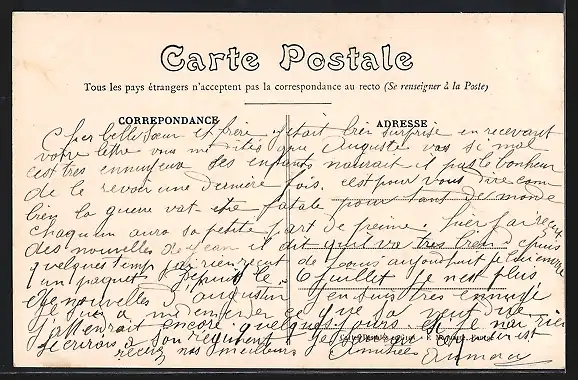 Carte Postale
Tous les pays étrangers n'acceptent pas la correspondance au recto (Se renseigner à la Poste)
CORRESPONDANCE
ADRESSE
Cher belle Sœur et frère j'étais bien surprise en recevant
votre lettre vous me dites que Auguste vas si mal
c'est très ennuyeux des enfants naurait il pas le bonheur
de le revoir une dernière fois. c'est pour vous dire com
bien la guerre vat etre fatale pour tant de monde
chaqu'un aura sa petite part de peine. hier j'ai reçu
des nouvelles de jean il dit qu'il va très bien depuis
quelques temps j'ai rien reçut de Louis aujourd'hui je lui envoie
un paquet. depuis le 6 juillet je n'est plus
de nouvelles d'augustin j'en suis très ennuyé
je suis a me demander ce que sa veut dire
j'attendrait encore quelques jours et si je n'ai rien
j'écrirais a son régiment je
recevez nos meilleurs amitiées